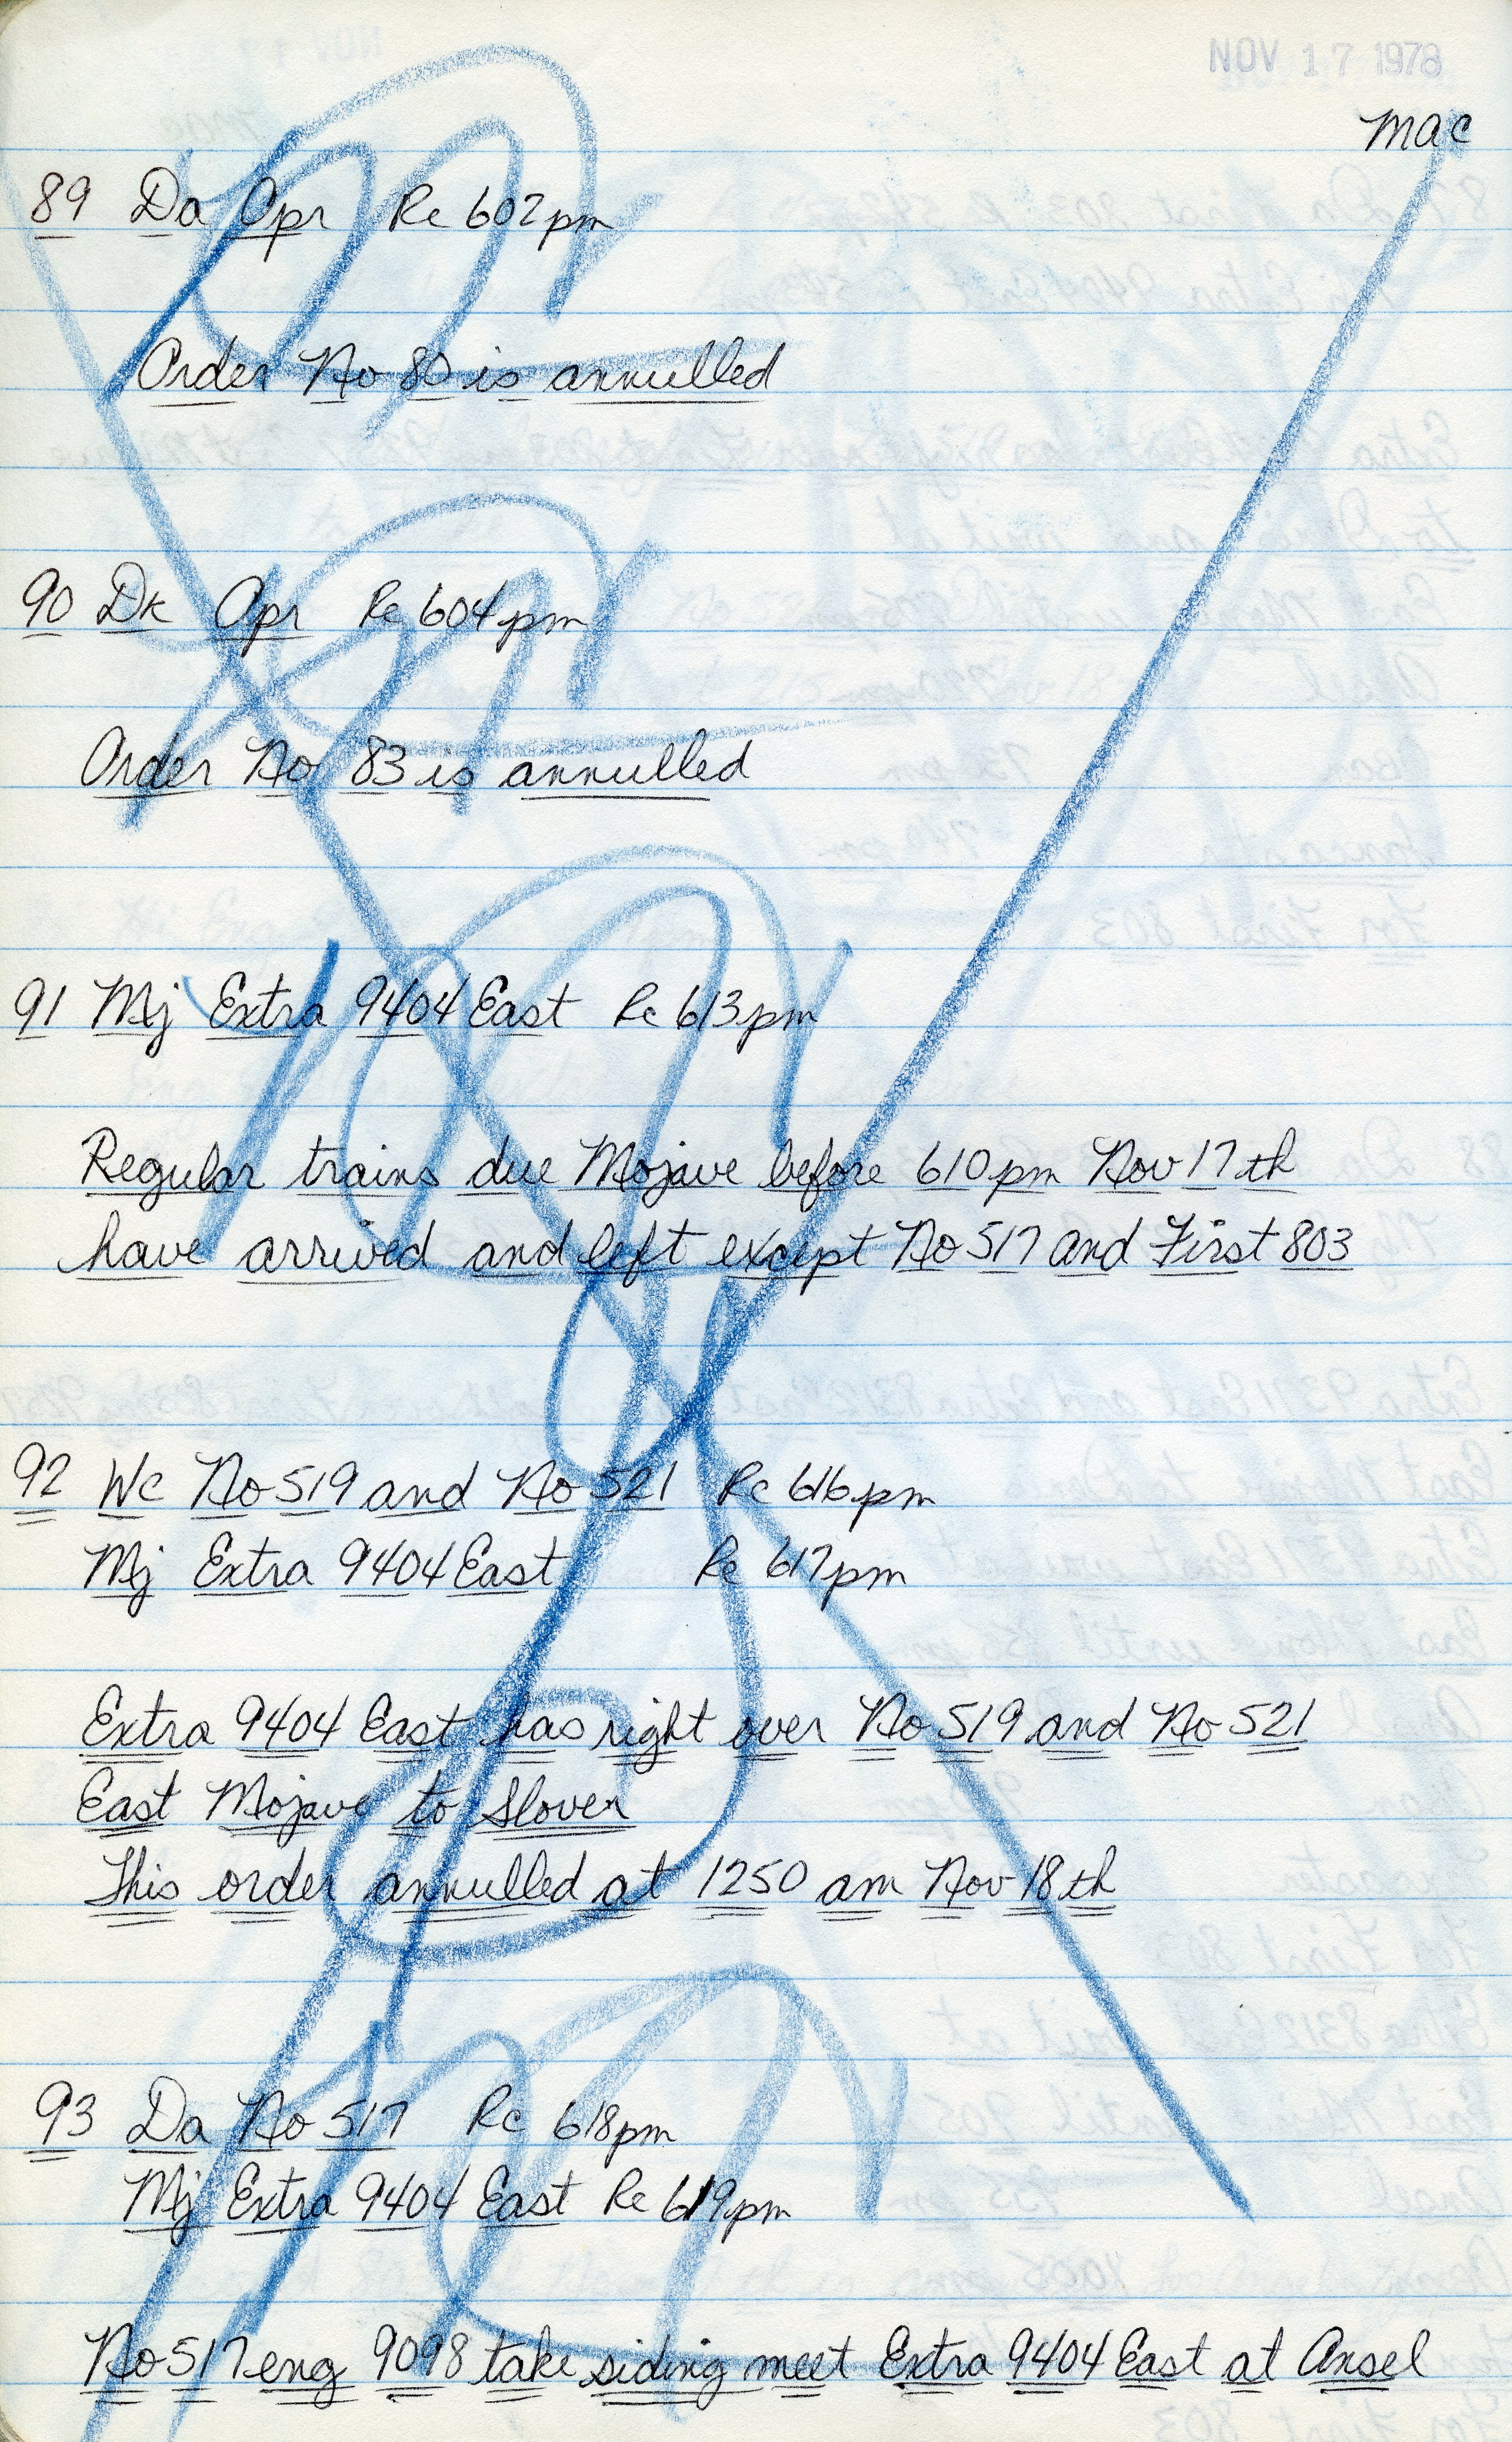 NOV 17 1978
mac
89 Da Opr Rc 602 pm
Order No 80 is annulled
90 Dk Opr Rc 604 pm
Order No 83 is annulled
91 Mj Extra 9404 East Rc 613 pm
Regular trains due Mojave before 610 pm Nov 17th
have arrived and left except No 517 and First 803
92 Wc No 519 and No 521 Rc 616 pm
Mj Extra 9404 East Rc 617 pm
Extra 9404 East has right over No 519 and No 521
East Mojave to Slover
This order annulled at 1250 am Nov 18th
93 Da No 517 Rc 618 pm
Mj Extra 9404 East Rc 619 pm
No 517 eng 9098 take siding meet Extra 9404 East at Ansel